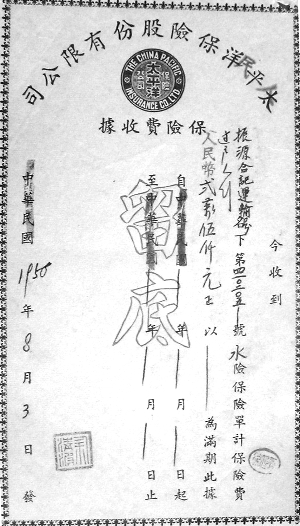 太平洋保險股份有限公司
THE CHINA PACIFIC
INSURANCE CO. LTD.
保險費收據
今收到
振源合記運輸 下第 號水險保險單計保險費
人民幣弍萬伍仟元正 以 為滿期此據
自中華民國 年 月 日起
至中華民國 年 月 日止
留底
中華民國 1950 年 8 月 3 日 發